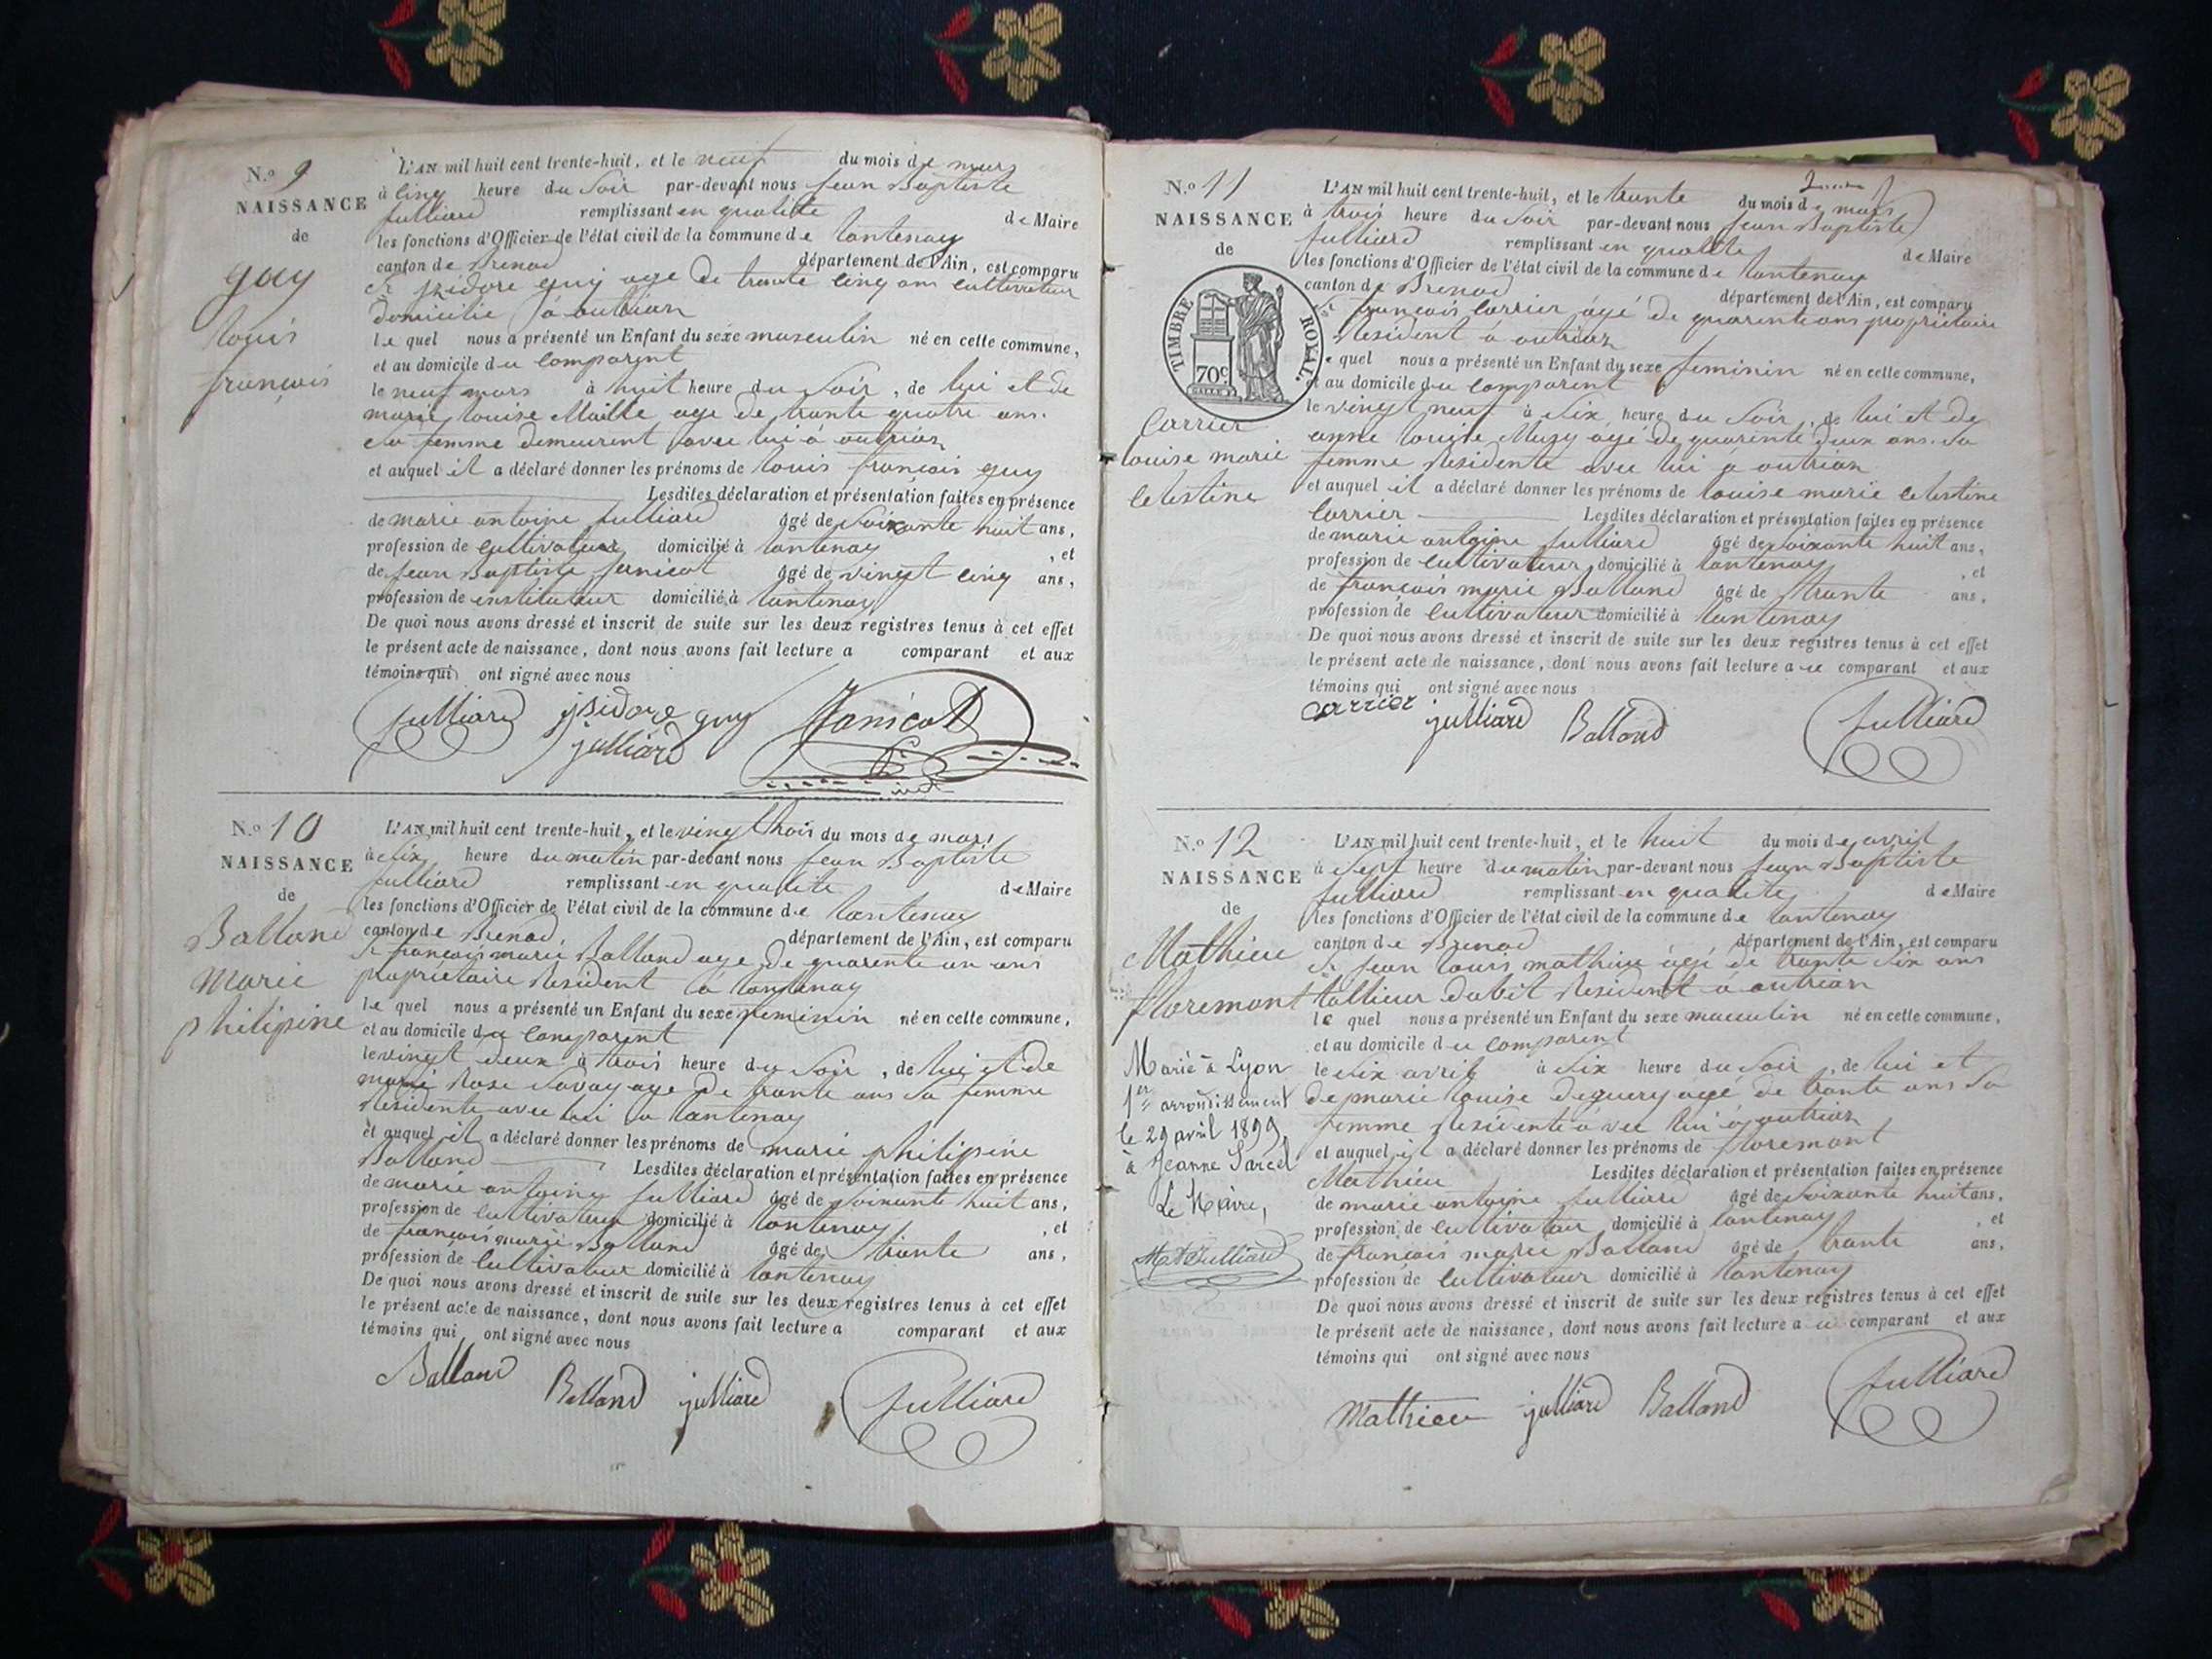 N.º 9
NAISSANCE
de
guy
louis
françois
L'AN mil huit cent trente-huit, et le neuf du mois de mars
à cinq heure du soir par-devant nous jean Baptiste
julliard remplissant en qualité de Maire
les fonctions d'Officier de l'état civil de la commune de lantenay
canton de Brenod département de l'Ain, est comparu
sr isidore guy age de trente cinq ans cultivateur
domicilie à outriaz
le quel nous a présenté un Enfant du sexe masculin né en cette commune,
et au domicile du comparent
le neuf mars à huit heure du soir, de lui et de
marie louise Maille age de trante quatre ans.
sa femme demeurent avec lui à outriaz
et auquel il a déclaré donner les prénoms de louis françois guy
Lesdites déclaration et présentation faites en présence
de marie antoine julliard âgé de soixante huit ans,
profession de cultivateur domicilié à lantenay, et
de jean Baptiste janicot âgé de vingt cinq ans,
profession de instituteur domicilié à lantenay
De quoi nous avons dressé et inscrit de suite sur les deux registres tenus à cet effet
le présent acte de naissance, dont nous avons fait lecture a comparant et aux
témoins qui ont signé avec nous
julliard isidore guy Janicot
julliard
N.º 10
NAISSANCE
de
Balland
marie
philipine
L'AN mil huit cent trente-huit, et le vingt trois du mois de mars
à six heure du matin par-devant nous jean Baptiste
julliard remplissant en qualité de Maire
les fonctions d'Officier de l'état civil de la commune de lantenay
canton de Brenod département de l'Ain, est comparu
sr françois marie Balland age de quarente un ans
propriétaire résident à lantenay
le quel nous a présenté un Enfant du sexe feminin né en cette commune,
et au domicile du comparent
le vingt deux à trois heure du soir, de lui et de
marie Rose Savay age de trante ans sa femme
residente avec lui a lantenay
et auquel il a déclaré donner les prénoms de marie philipine
Balland Lesdites déclaration et présentation faites en présence
de marie antoine julliard âgé de soixante huit ans,
profession de cultivateur domicilié à lantenay, et
de françois marie Balland âgé de trante ans,
profession de cultivateur domicilié à lantenay
De quoi nous avons dressé et inscrit de suite sur les deux registres tenus à cet effet
le présent acte de naissance, dont nous avons fait lecture a comparant et aux
témoins qui ont signé avec nous
Balland Balland julliard julliard
N.º 11
NAISSANCE
de
TIMBRE ROYAL.
70c
Carrier
louise marie
celestine
L'AN mil huit cent trente-huit, et le trante du mois de mars
à trois heure du soir par-devant nous jean Baptiste
julliard remplissant en qualité de Maire
les fonctions d'Officier de l'état civil de la commune de lantenay
canton de Brenod département de l'Ain, est comparu
sr françois Carrier âgé de quarente ans propriétaire
résident à outriaz
le quel nous a présenté un Enfant du sexe feminin né en cette commune,
et au domicile du comparent
le vingt neuf à six heure du soir, de lui et de
anne louise Muzy âgé de quarente deux ans. sa
femme residente avec lui a outriaz
et auquel il a déclaré donner les prénoms de louise marie celestine
Carrier Lesdites déclaration et présentation faites en présence
de marie antoine julliard âgé de soixante huit ans,
profession de cultivateur domicilié à lantenay, et
de françois marie Balland âgé de trante ans,
profession de cultivateur domicilié à lantenay
De quoi nous avons dressé et inscrit de suite sur les deux registres tenus à cet effet
le présent acte de naissance, dont nous avons fait lecture a ce comparant et aux
témoins qui ont signé avec nous
carrier julliard Balland julliard
N.º 12
NAISSANCE
de
Mathieu
floremont
Marié à Lyon
1er arrondissement
le 29 avril 1899
à Jeanne Sarcel
Le Maire,
Julliard
L'AN mil huit cent trente-huit, et le huit du mois de avril
à sept heure du matin par-devant nous jean Baptiste
julliard remplissant en qualité de Maire
les fonctions d'Officier de l'état civil de la commune de lantenay
canton de Brenod département de l'Ain, est comparu
sr jean louis mathieu âgé de trante six ans
tallieur dabit résident à outriaz
le quel nous a présenté un Enfant du sexe masculin né en cette commune,
et au domicile du comparent
le six avril à six heure du soir, de lui et
de marie louise deguery agé de trante ans sa
femme residente avec lui a outriaz
et auquel il a déclaré donner les prénoms de floremont
Mathieu Lesdites déclaration et présentation faites en présence
de marie antoine julliard âgé de soixante huit ans,
profession de cultivateur domicilié à lantenay, et
de françois marie Balland âgé de trante ans,
profession de cultivateur domicilié à lantenay
De quoi nous avons dressé et inscrit de suite sur les deux registres tenus à cet effet
le présent acte de naissance, dont nous avons fait lecture a ce comparant et aux
témoins qui ont signé avec nous
Mathieu julliard Balland julliard